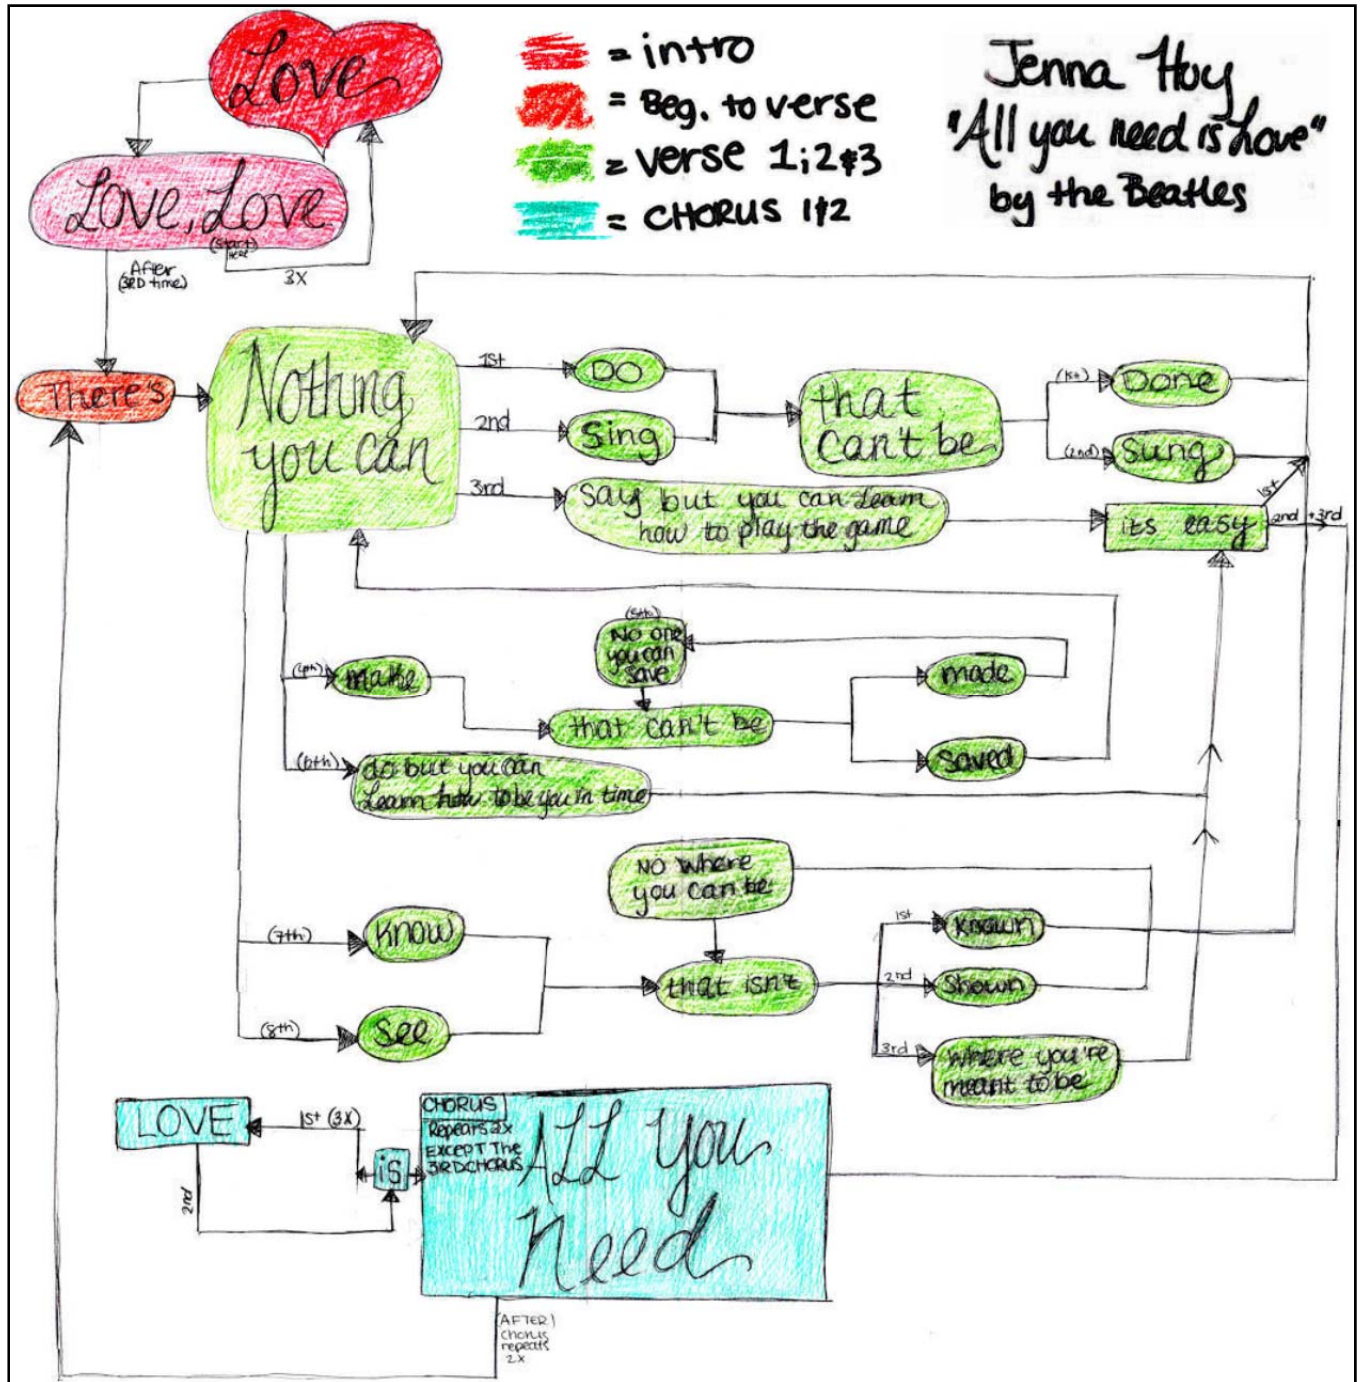 Love
Love, Love
(Start
Here)
3X
After
(3RD time)
= intro
= Beg. to verse
= verse 1;2&3
= CHORUS 1&2
Jenna Huy
"All you need is Love"
by the Beatles
There's
Nothing
you can
1st
DO
2nd
Sing
3rd
say but you can Learn
how to play the game
that
can't be
(1st)
Done
(2nd)
Sung
its easy
1st
2nd + 3rd
(4th)
make
(5th)
No one
you can
save
that can't be
made
saved
(6th)
do but you can
Learn how to be you in time
NO where
you can be
(7th)
Know
(8th)
See
that isn't
1st
Known
2nd
Shown
3rd
where you're
meant to be
LOVE
1st (3X)
2nd
is
CHORUS
Repears 2x
EXCEPT The
3RD CHORUS
ALL You
Need
(AFTER)
chorus
repeats
2X